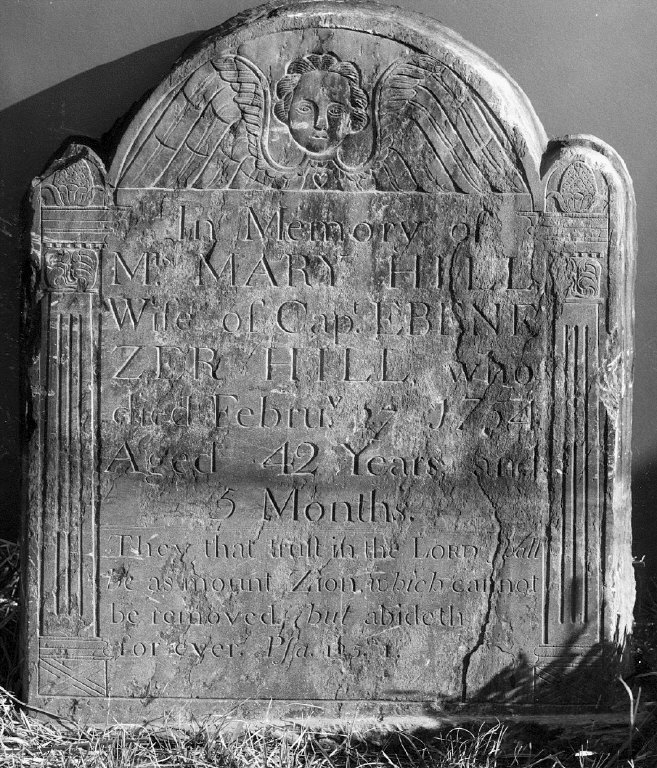 In Memory of
Mrs. MARY HILL
Wife of Capt. EBENE
ZER HILL, who
died Februy. 1754
Aged 42 Years, and
5 Months.
They that trust in the LORD, shall
be as mount Zion, which cannot
be removed, but abideth
for ever. Psa. 125. 1.